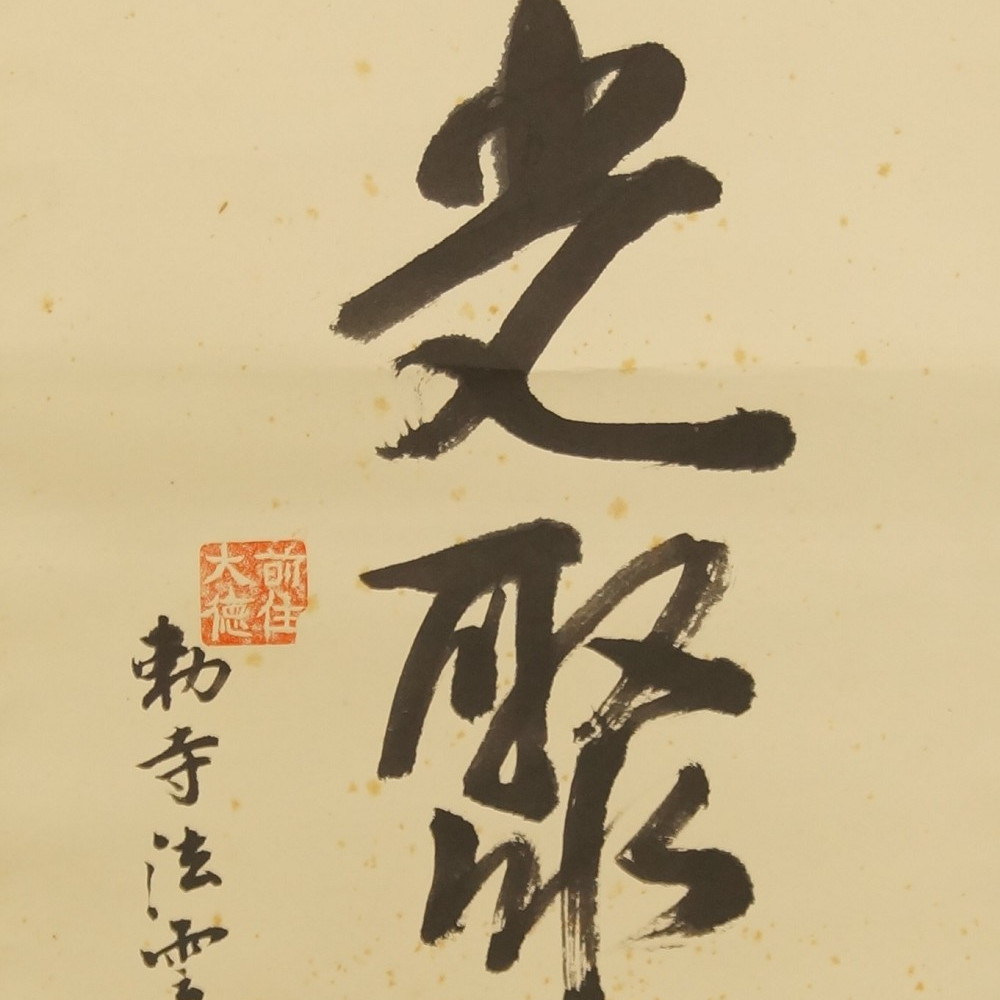 光聚
前住
大德
勅寺法雲